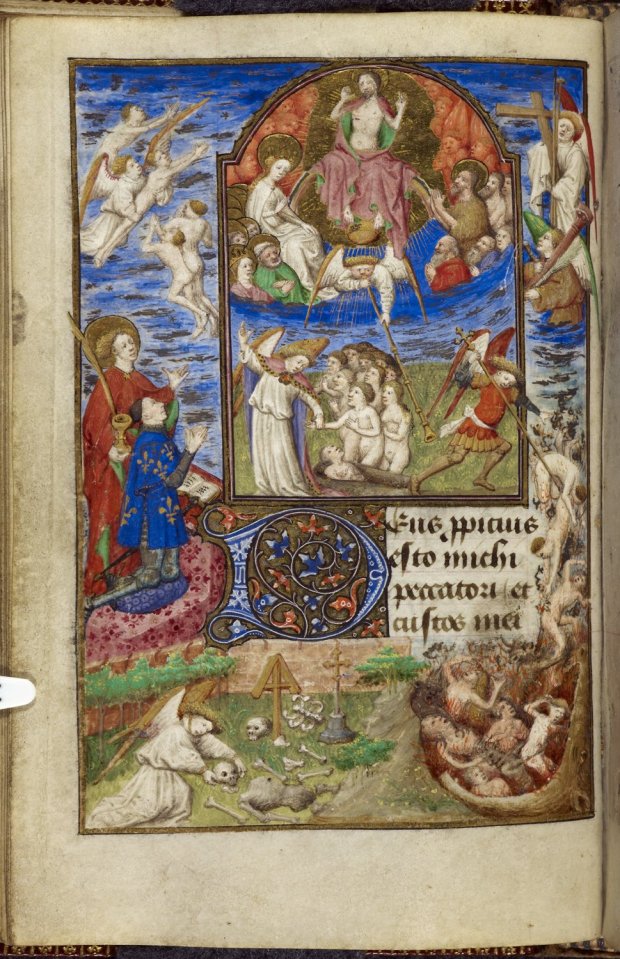 Deus ꝓpicius
esto michi
peccatori et
custos mei